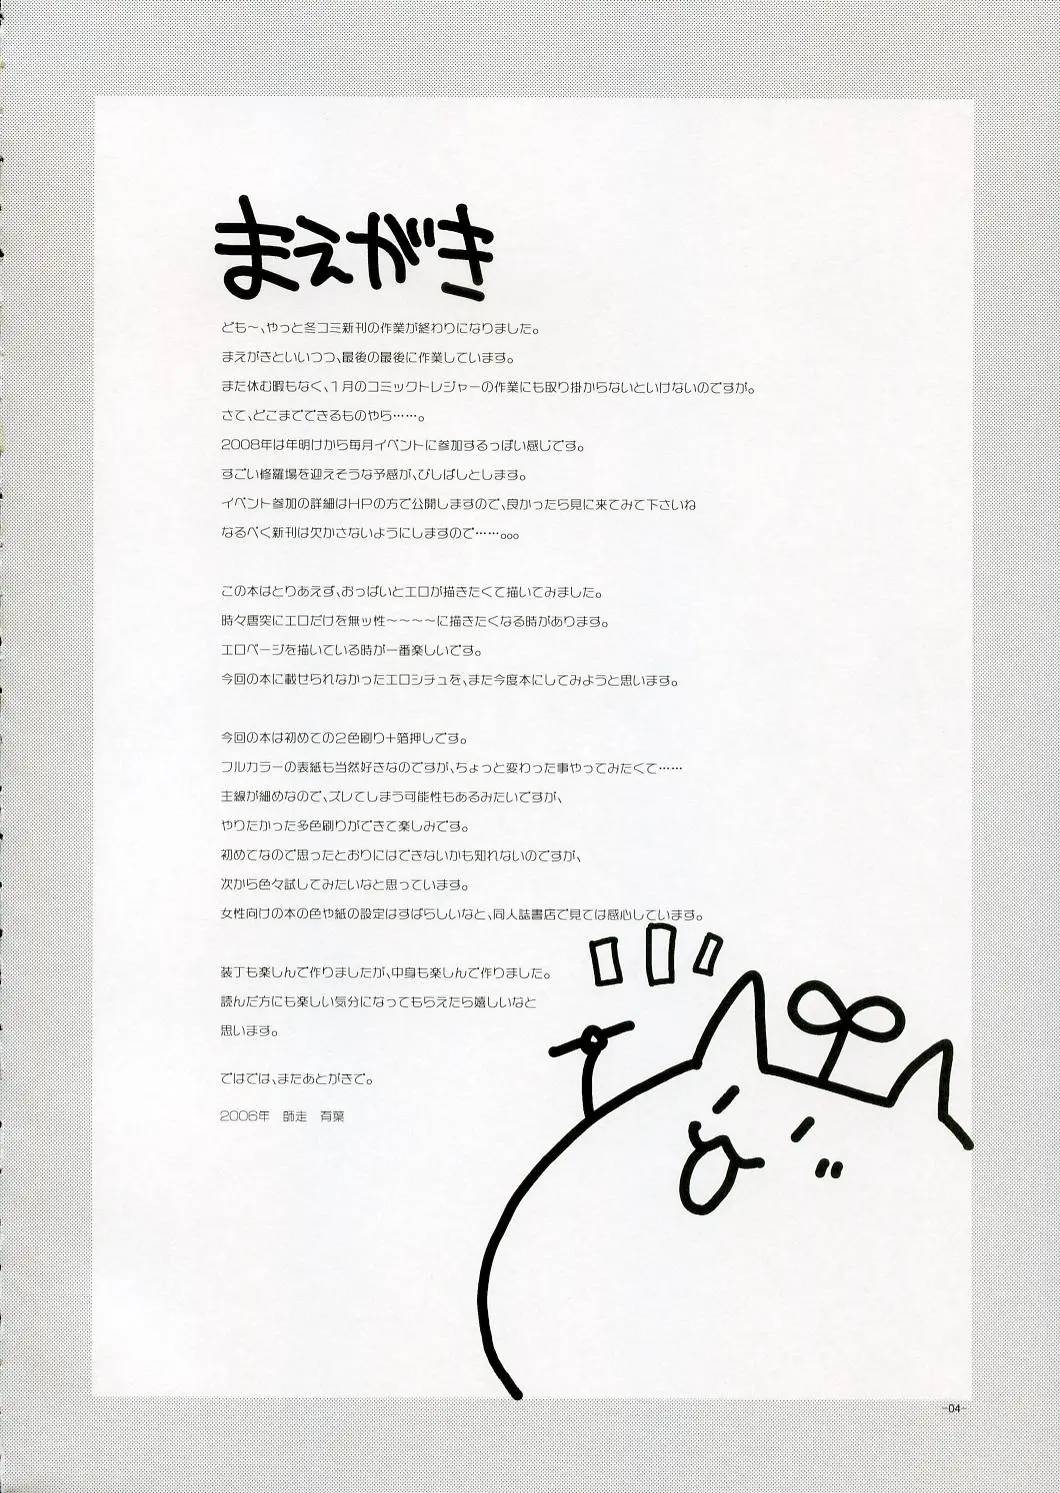 まえがき
ども〜、やっと冬コミ新刊の作業が終わりになりました。
まえがきといいつつ、最後の最後に作業しています。
まだ休む暇もなく、1月のコミックトレジャーの作業にも取り掛からないといけないのですが。
さて、どこまでできるものやら……。
2008年は年明けから毎月イベントに参加するっぽい感じです。
すごい修羅場を迎えそうな予感が、びしばしとします。
イベント参加の詳細はHPの方で公開しますので、良かったら見に来てみて下さいね
なるべく新刊は欠かさないようにしますので……。。。
この本はとりあえず、おっぱいとエロが描きたくて描いてみました。
時々唐突にエロだけを無ッ性〜〜〜〜に描きたくなる時があります。
エロページを描いている時が一番楽しいです。
今回の本に載せられなかったエロシチュを、また今度本にしてみようと思います。
今回の本は初めての2色刷り+箔押しです。
フルカラーの表紙も当然好きなのですが、ちょっと変わった事やってみたくて……
主線が細めなので、ズレてしまう可能性もあるみたいですが、
やりたかった多色刷りができて楽しみです。
初めてなので思ったとおりにはできないかも知れないのですが、
次から色々試してみたいなと思っています。
女性向けの本の色や紙の設定はすばらしいなと、同人誌書店で見ては感心しています。
装丁も楽しんで作りましたが、中身も楽しんで作りました。
読んだ方にも楽しい気分になってもらえたら嬉しいなと
思います。
ではでは、またあとがきで。
2006年 師走 有葉
-04-